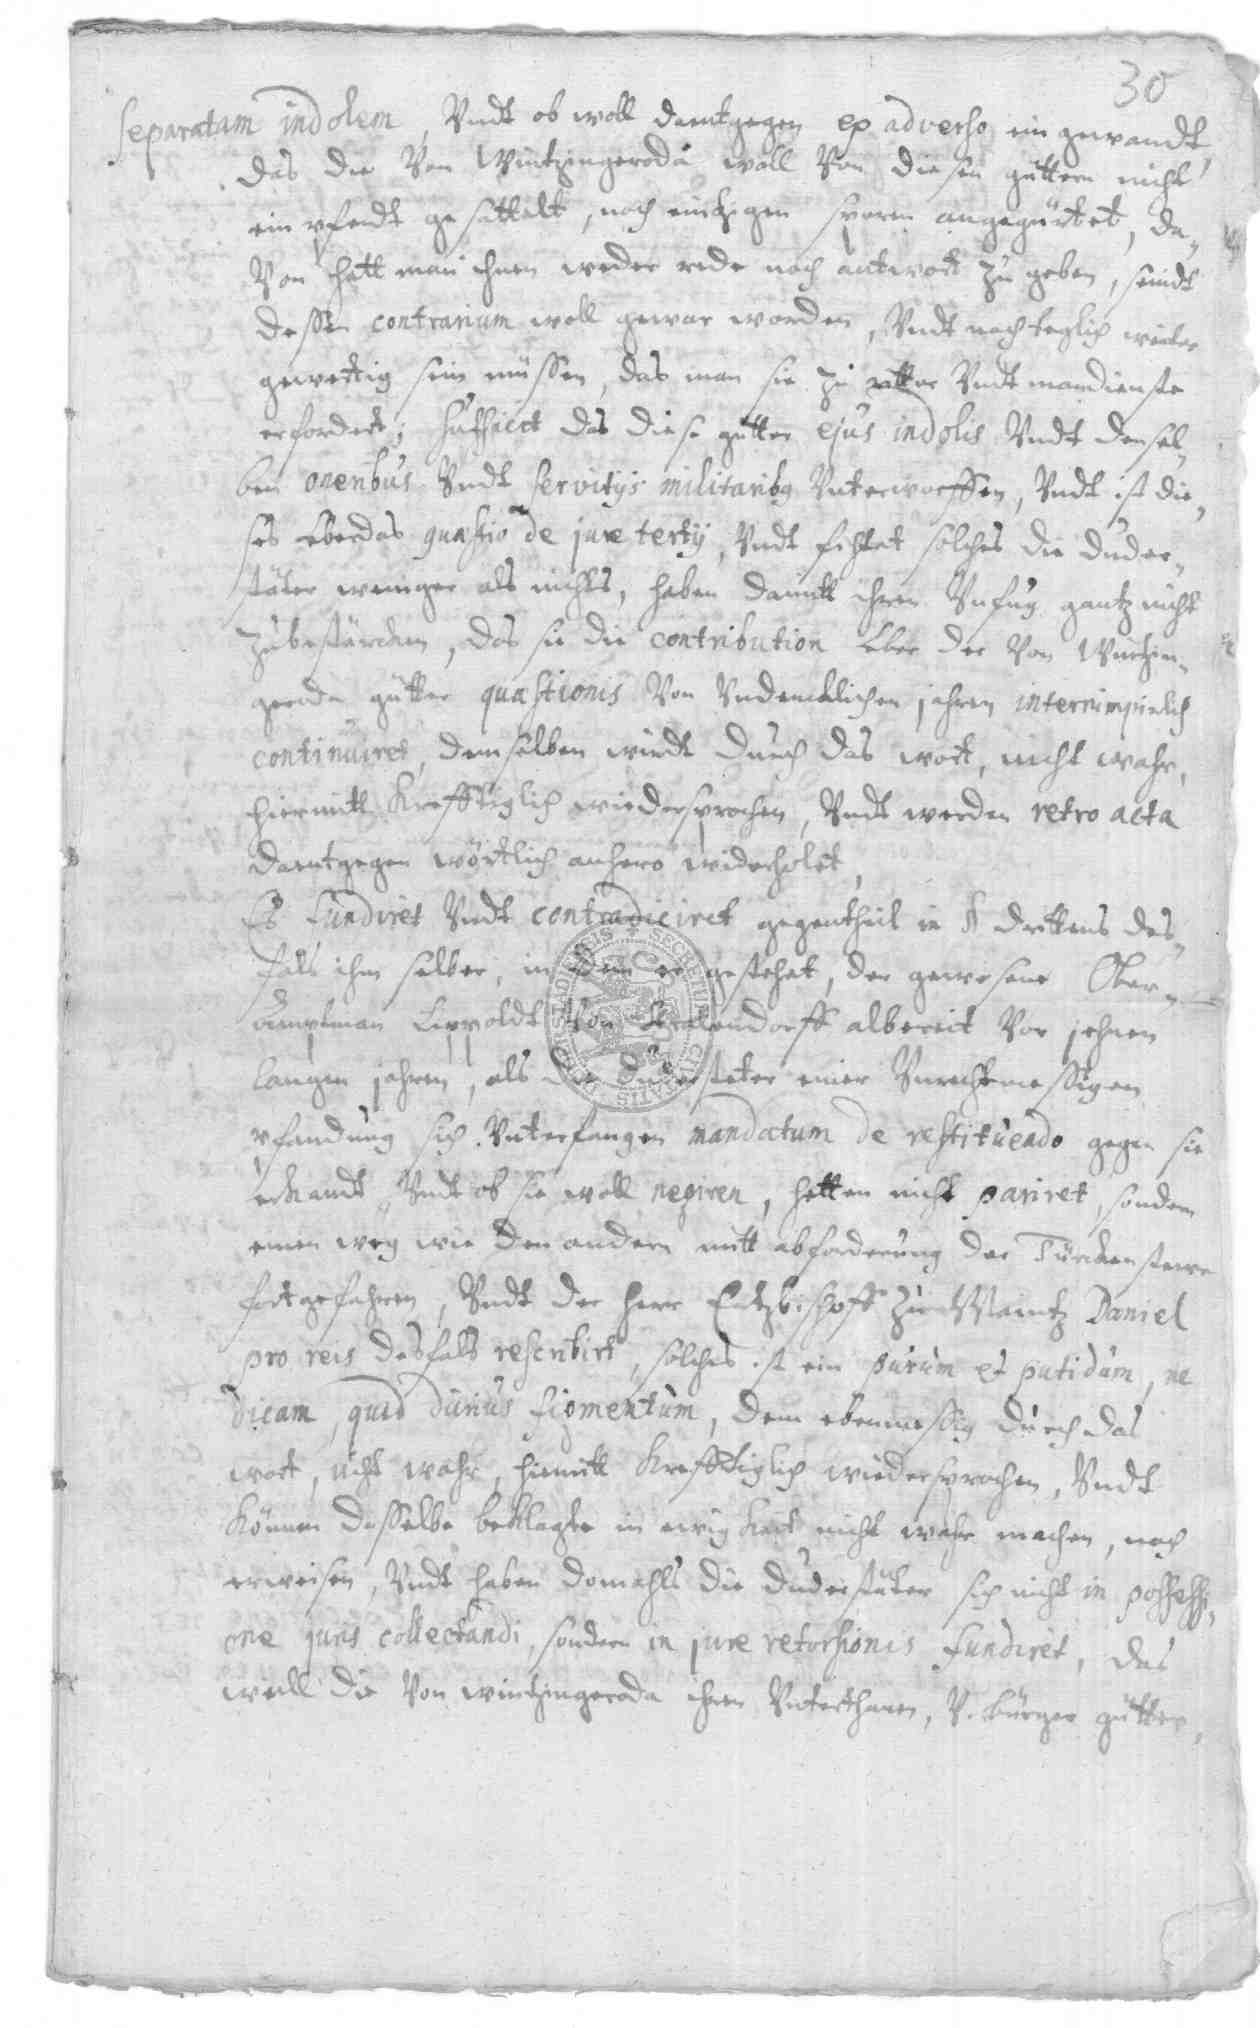 30
separatam indolem, Vndt ob woll darentgegen ex adverso ein gewandt,
das die Von Wintzingeroda woll Von diesen güttern nicht
ein pferdt gesattelt, noch eintzigen sporen angegürtet, da-
Von hatt man ihnen weder rede noch antwort zu geben, seindt
dessen contrarium woll gewar worden, Vndt noch teglich weiter
gewertig sein müssen, das man sie zu ritter Vndt mandienste
erfordert, sufficit das diese gütter ejus indolis Vndt densel-
ben oneribus Vndt servitijs militaribus Vnterworffen, Vndt ist die-
ses Vberdas quæstio de jure tertij, Vndt fichtet solches die Duder-
stäter weniger als nichts, haben damitt ihren Vnfug gantz nicht
zubestärcken, das sie die contribution Vber der Von Wintzin-
geroda gütter quæstionis Von Vndencklichen jahren interrumpirlich
continuiret, demselben wirdt durch das wort, nicht wahr,
hiermitt krefftiglich wiedersprochen, Vndt werden retro acta
darentgegen wörtlich anhero widerholet,
Es fundiret Vndt contradiciret gegentheil in § drittens des-
fals ihm selber, in dem er gestehet, der gewesene Ober-
amptman Lippoldt Von albereit Vor jehnen
langen jahren, als die Dudersteter einer Vnrechtmessigen
pfandung sich Vnterfangen mandatum de restituendo gegen sie
erkandt, Vndt ob sie woll negiren, hetten nicht pariret, sondern
einen weg wie den andern mitt abforderung der Türckensteure
fortgefahren, Vndt der Herr Ertzbischoff zu Maintz Daniel
pro reis desfals rescribirt, solches ist ein purum et putidum, ne
dicam, quid durius figmentum, dem ebenmessig durch das
wort, nicht wahr, hiemitt krefftiglich wiedersprochen, Vndt
können dasselbe beklagte in ewigkeit nicht wahr machen, noch
erweisen, Vndt haben domahls die Duderstäter sich nicht in possessi-
one juris collectandi, sondern in jure retorsionis fundiret, das
weill die Von wintzingeroda ihren Vnterthanen, V. bürger gütter,